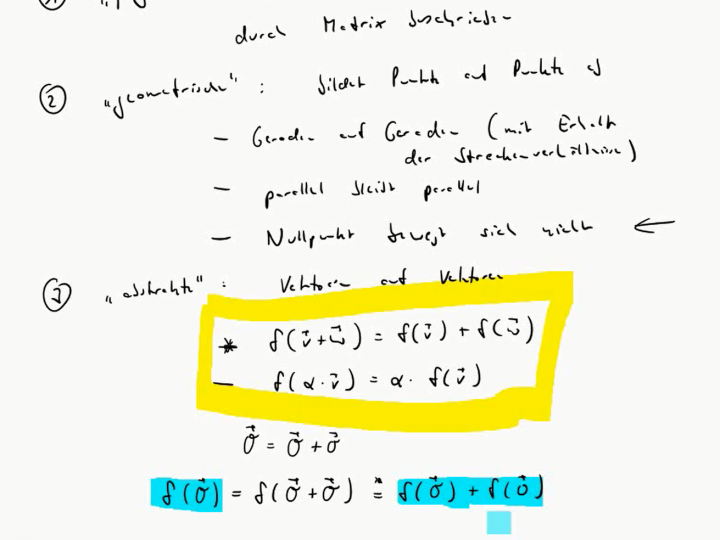 durch Matrix beschrieben
② "geometrische" : bildet Punkte auf Punkte ab
– Geraden auf Geraden (mit Erhalt
der Streckenverhältnisse)
– parallel bleibt parallel
– Nullpunkt bewegt sich nicht ←
③ "abstrakte" : Vektoren auf Vektoren
* f(v⃗+w⃗) = f(v⃗) + f(w⃗)
– f(α·v⃗) = α · f(v⃗)
0⃗ = 0⃗ + 0⃗
f(0⃗) = f(0⃗+0⃗) *= f(0⃗) + f(0⃗)